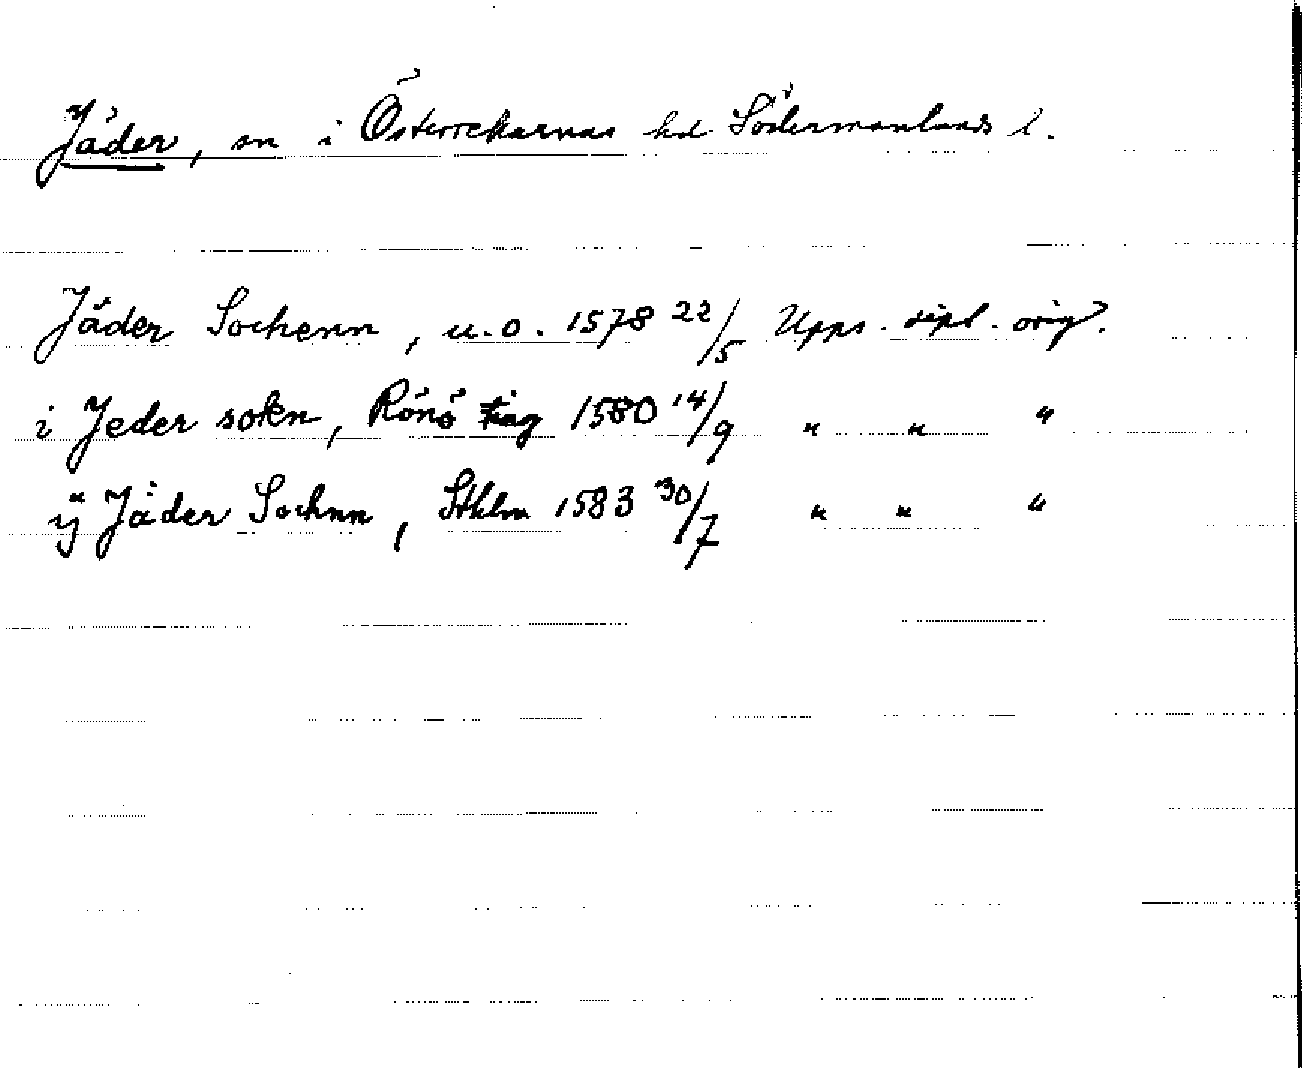 Jäder, sn i Österrekarnas hd Södermanlands l.
Jäder Sochenn, u.o. 1578 22/5 Upps. dipl. orig.
i Jeder sokn, Rönö ting 1580 14/9 " " "
ÿ Jäder Sochnn, Sthlm 1583 30/7 " " "